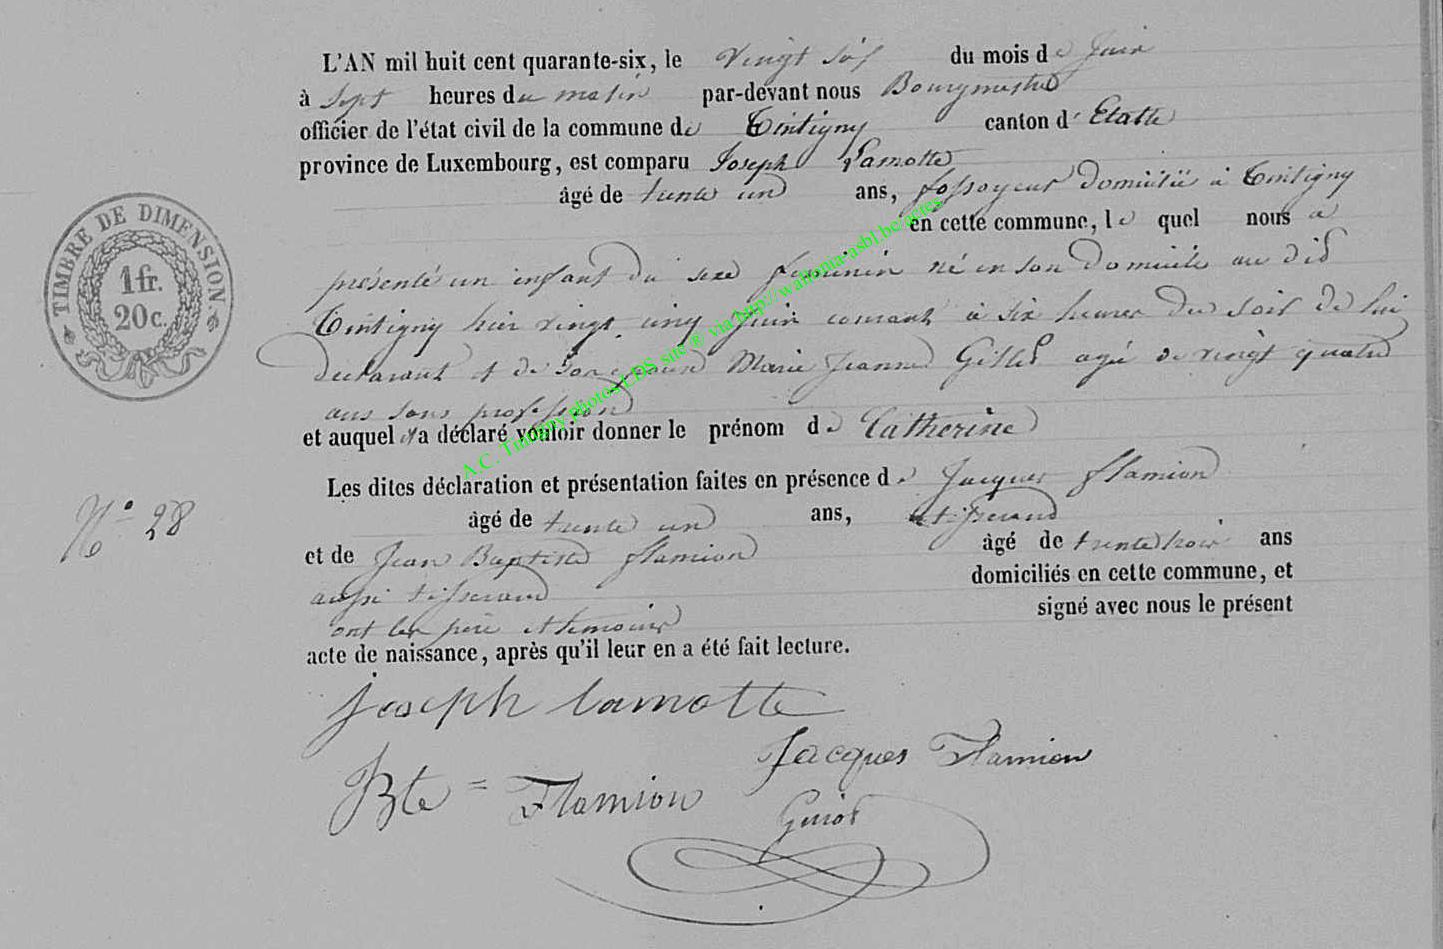 L'AN mil huit cent quarante-six, le vingt six du mois de Juin
à Sept heures du matin par-devant nous Bourgmestre
officier de l'état civil de la commune de Tintigny canton d'Etalle
province de Luxembourg, est comparu Joseph Lamotte
âgé de trente un ans, fossoyeur domicilié à Tintigny
en cette commune, le quel nous a
présenté un enfant du sexe féminin né en son domicile au dit
Tintigny hier vingt cinq Juin courant à six heures du soir de lui
déclarant et de son épouse Marie Jeanne Gilles agée de vingt quatre
ans sans profession
et auquel il a déclaré vouloir donner le prénom de Catherine
Les dites déclaration et présentation faites en présence de Jacques flamion
âgé de trente un ans, tisserand
et de Jean Baptiste flamion âgé de trente trois ans
aussi tisserand domiciliés en cette commune, et
ont les père et témoins signé avec nous le présent
acte de naissance, après qu'il leur en a été fait lecture.
Joseph lamotte
Jacques Flamion
Bte = Flamion
Guiot
N° 28
TIMBRE DE DIMENSION.
1 fr.
20 c.
A.C. Tintigny photos LDS site ® via http://wallonia-asbl.be/actes